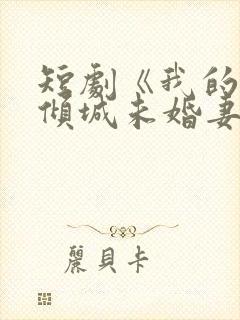 短劇《我的
傾城未婚妻
麗貝卡